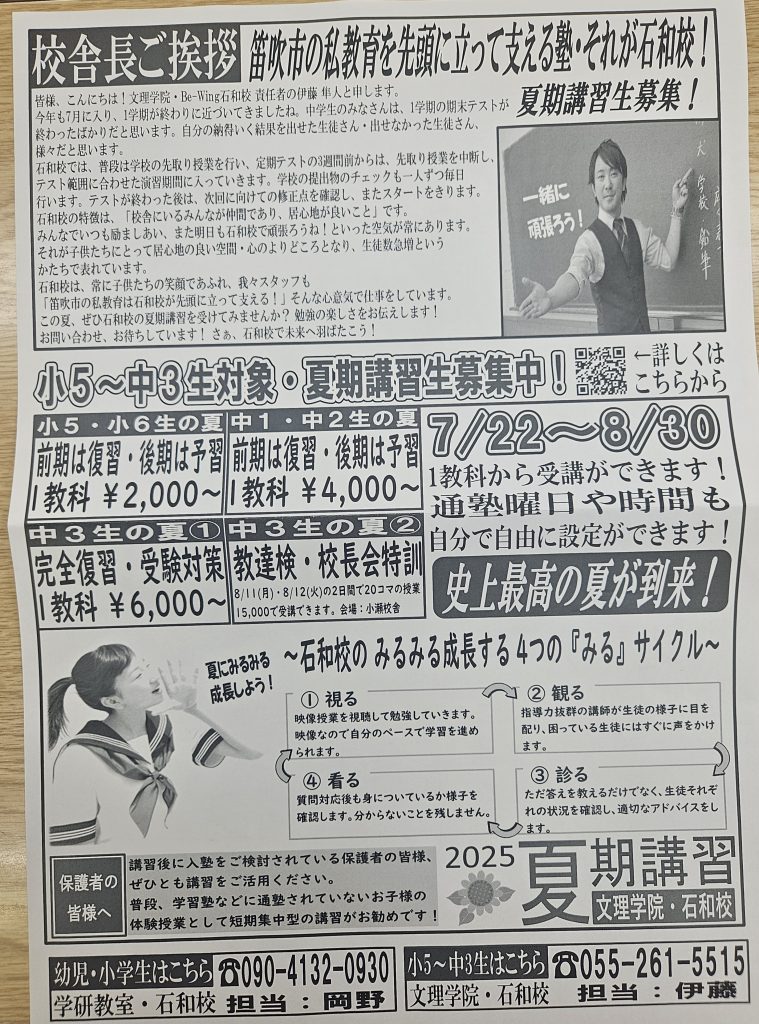 校舎長ご挨拶
笛吹市の私教育を先頭に立って支える塾・それが石和校！
夏期講習生募集！
皆様、こんにちは！文理学院・Be-Wing石和校 責任者の伊藤 隼人と申します。
今年も7月に入り、1学期が終わりに近づいてきましたね。中学生のみなさんは、1学期の期末テストが
終わったばかりだと思います。自分の納得いく結果を出せた生徒さん・出せなかった生徒さん、
様々だと思います。
石和校では、普段は学校の先取り授業を行い、定期テストの3週間前からは、先取り授業を中断し、
テスト範囲に合わせた演習期間に入っていきます。学校の提出物のチェックも一人ずつ毎日
行います。テストが終わった後は、次回に向けての修正点を確認し、またスタートをきります。
石和校の特徴は、「校舎にいるみんなが仲間であり、居心地が良いこと」です。
みんなでいつも励ましあい、また明日も石和校で頑張ろうね！といった空気が常にあります。
それが子供たちにとって居心地の良い空間・心のよりどころとなり、生徒数急増という
かたちで表れています。
石和校は、常に子供たちの笑顔であふれ、我々スタッフも
「笛吹市の私教育は石和校が先頭に立って支える！」そんな心意気で仕事をしています。
この夏、ぜひ石和校の夏期講習を受けてみませんか？勉強の楽しさをお伝えします！
お問い合わせ、お待ちしています！さぁ、石和校で未来へ羽ばたこう！
一緒に
頑張ろう！
小5～中3生対象・夏期講習生募集中！
←詳しくは
こちらから
小5・小6生の夏
前期は復習・後期は予習
1教科 ￥2,000～
中1・中2生の夏
前期は復習・後期は予習
1教科 ￥4,000～
中3生の夏①
完全復習・受験対策
1教科 ￥6,000～
中3生の夏②
教達検・校長会特訓
8/11(月)・8/12(火)の2日間で20コマの授業
15,000で受講できます。会場：小瀬校舎
7/22～8/30
1教科から受講ができます！
通塾曜日や時間も
自分で自由に設定ができます！
史上最高の夏が到来！
夏にみるみる
成長しよう！
～石和校の みるみる成長する 4つの『みる』サイクル～
① 視る
映像授業を視聴して勉強していきます。
映像なので自分のペースで学習を進め
られます。
② 観る
指導力抜群の講師が生徒の様子に目を
配り、困っている生徒にはすぐに声をかけ
ます。
④ 看る
質問対応後も身についているか様子を
確認します。分からないことを残しません。
③ 診る
ただ答えを教えるだけでなく、生徒それぞ
れの状況を確認し、適切なアドバイスをし
ます。
保護者の
皆様へ
講習後に入塾をご検討されている保護者の皆様、
ぜひとも講習をご活用ください。
普段、学習塾などに通塾されていないお子様の
体験授業として短期集中型の講習がお勧めです！
2025
夏期講習
文理学院・石和校
幼児・小学生はこちら ☎090-4132-0930
学研教室・石和校 担当：岡野
小5～中3生はこちら ☎055-261-5515
文理学院・石和校 担当：伊藤